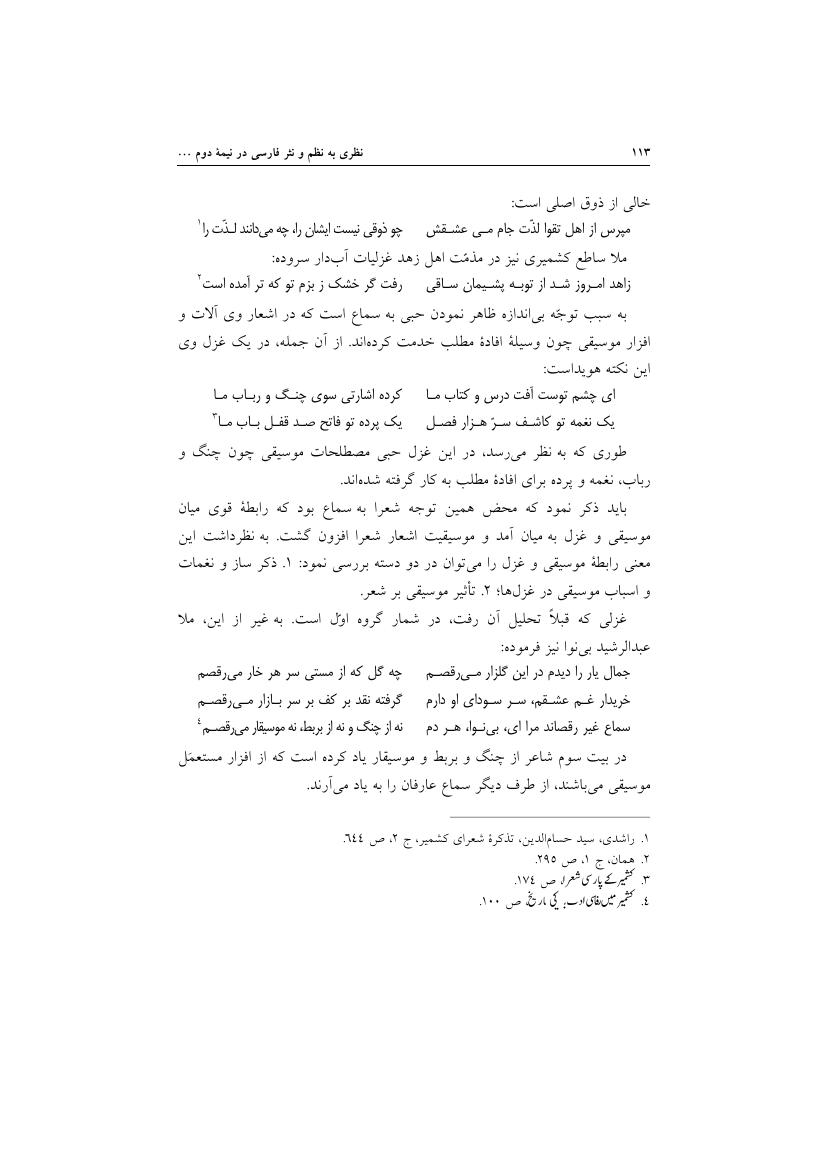 ١١٣ نظری به نظم و نثر فارسی در نیمهٔ دوم ...
خالی از ذوق اصلی است:
مپرس از اهل تقوا لذّت جام مـی عشـقش چو ذوقی نیست ایشان را، چه می‌دانند لـذّت را١
ملا ساطع کشمیری نیز در مذمّت اهل زهد غزلیات آب‌دار سروده:
زاهد امـروز شـد از توبـه پشـیمان سـاقی رفت گر خشک ز بزم تو که تر آمده است٢
به سبب توجّه بی‌اندازه ظاهر نمودن حبی به سماع است که در اشعار وی آلات و
افزار موسیقی چون وسیلهٔ افادهٔ مطلب خدمت کرده‌اند. از آن جمله، در یک غزل وی
این نکته هویداست:
ای چشم توست آفت درس و کتاب مـا کرده اشارتی سوی چنـگ و ربـاب مـا
یک نغمه تو کاشـف سـرّ هـزار فصـل یک پرده تو فاتح صـد قفـل بـاب مـا٣
طوری که به نظر می‌رسد، در این غزل حبی مصطلحات موسیقی چون چنگ و
رباب، نغمه و پرده برای افادهٔ مطلب به کار گرفته شده‌اند.
باید ذکر نمود که محض همین توجه شعرا به سماع بود که رابطهٔ قوی میان
موسیقی و غزل به میان آمد و موسیقیت اشعار شعرا افزون گشت. به نظرداشت این
معنی رابطهٔ موسیقی و غزل را می‌توان در دو دسته بررسی نمود: ١. ذکر ساز و نغمات
و اسباب موسیقی در غزل‌ها؛ ٢. تأثیر موسیقی بر شعر.
غزلی که قبلاً تحلیل آن رفت، در شمار گروه اوّل است. به غیر از این، ملا
عبدالرشید بی‌نوا نیز فرموده:
جمال یار را دیدم در این گلزار مـی‌رقصـم چه گل که از مستی سر هر خار می‌رقصم
خریدار غـم عشـقم، سـر سـودای او دارم گرفته نقد بر کف بر سر بـازار مـی‌رقصـم
سماع غیر رقصاند مرا ای، بی‌نـوا، هـر دم نه از چنگ و نه از بربط، نه موسیقار می‌رقصـم٤
در بیت سوم شاعر از چنگ و بربط و موسیقار یاد کرده است که از افزار مستعمَل
موسیقی می‌باشند، از طرف دیگر سماع عارفان را به یاد می‌آرند.
١. راشدی، سید حسام‌الدین، تذکرهٔ شعرای کشمیر، ج ٢، ص ٦٤٤.
٢. همان، ج ١، ص ٢٩٥.
٣. کشمیر کے پارسی شعرا، ص ١٧٤.
٤. کشمیر میں ادب کی تاریخ، ص ١٠٠.